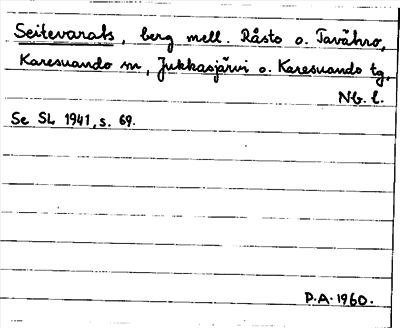 Seitevarats, berg mell. Råsto o. Tavåhro,
Karesuando sn, Jukkasjärvi o. Karesuando tg,
Nb. l.
Se SL 1941, s. 69.
P.A. 1960.